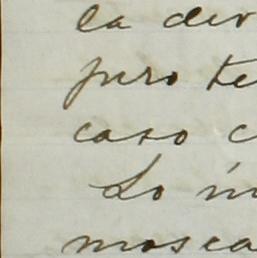 la div
puro te
caso c
Lo in
mosca